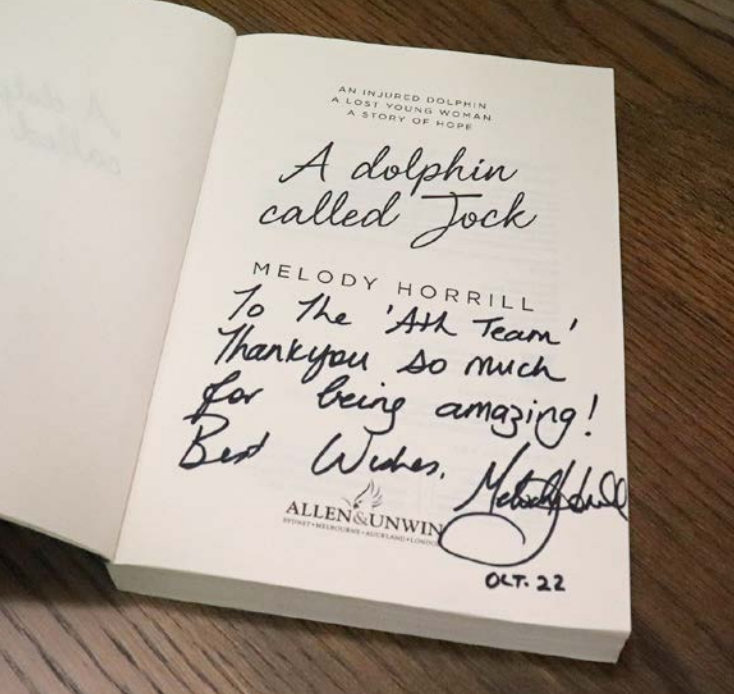 AN INJURED DOLPHIN
A LOST YOUNG WOMAN
A STORY OF HOPE
A dolphin
called Jock
MELODY HORRILL
To The 'Ath Team'
Thankyou so much
for being amazing!
Best Wishes, Melody Horrill
ALLEN&UNWIN
SYDNEY•MELBOURNE•AUCKLAND•LONDON
OCT. 22